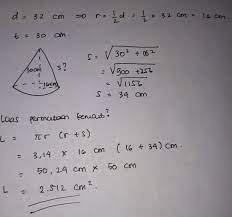 d = 32 cm ⇒ r = 1/2 d = 1/2 × 32 cm = 16 cm
t = 30 cm.
30cm s?
16cm
s = √(30² + 16²)
= √(900 + 256)
= √1156
s = 34 cm
Luas permukaan kerucut?
L = πr (r + s)
= 3,14 × 16 cm (16 + 34) cm
= 50,24 cm × 50 cm
L = 2.512 cm².